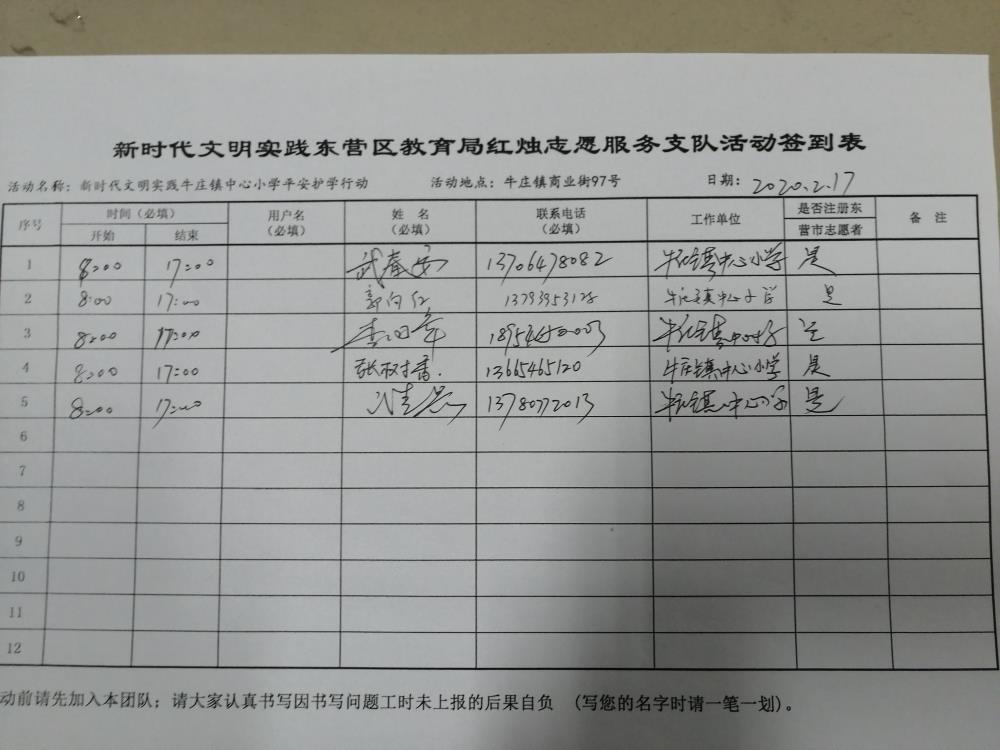 新时代文明实践东营区教育局红烛志愿服务支队活动签到表
活动名称：新时代文明实践牛庄镇中心小学平安护学行动 活动地点：牛庄镇商业街97号 日期：2020.2.17
序号 时间（必填） 用户名（必填） 姓 名（必填） 联系电话（必填） 工作单位 是否注册东营市志愿者 备 注
开始 结束
1 8:00 17:00 武春安 13706478082 牛庄镇中心小学 是
2 8:00 17:00 郭向红 牛庄镇中心小学 是
3 8:00 17:00 牛庄镇中心小学 是
4 8:00 17:00 张 13665465120 牛庄镇中心小学 是
5 8:00 17:00 牛庄镇中心小学 是
6
7
8
9
10
11
12
动前请先加入本团队；请大家认真书写因书写问题工时未上报的后果自负 （写您的名字时请一笔一划）。